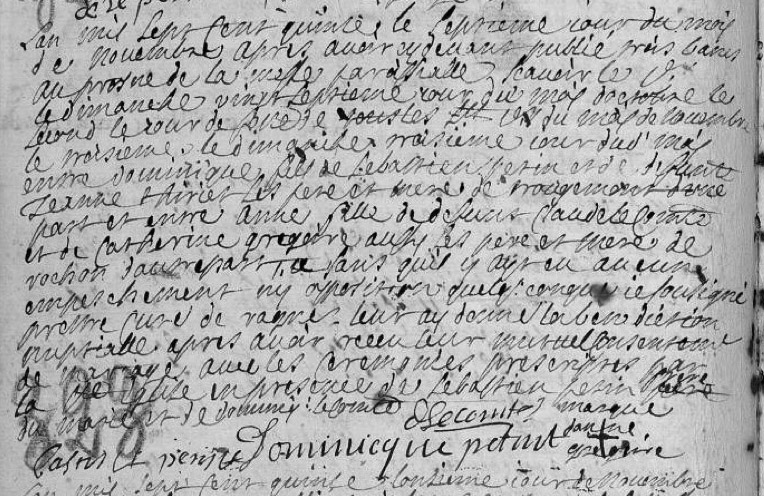 Lan mil sept cent quinze le septieme jour du mois
de novembre apres avoir cy devant publié trois bans
au prosne de la messe paroissialle scavoir le
le dimanche vingt septieme jour du mois doctobre le
second le jour de feste de touslles du mois de novembre
le troisieme le dimanche troisieme jour dud mois
entre dominique fils de Sebastien petin et de defunte
Jeanne les pere et mere de rougemont dune
part et entre anne fille de defunt Claude le Comte
et de Catherine gregoire aussy les pere et mere de
rochon dautre part sans quil y ayt eu aucun
empeschement ny opposition quelqconque ie soussigné
prettre curé de leur ay donné la benediction
nuptialle apres avoir receu leur mutuel consenteme
de mariage avec les ceremonies prescrittes par
la Eglise en presence de Sebastien petin pere
du marié et de Dominiq le Comte
DLecomte marque
Dominicque petint danne
gregoire
Lan mil sept cent quinze jour de novembre